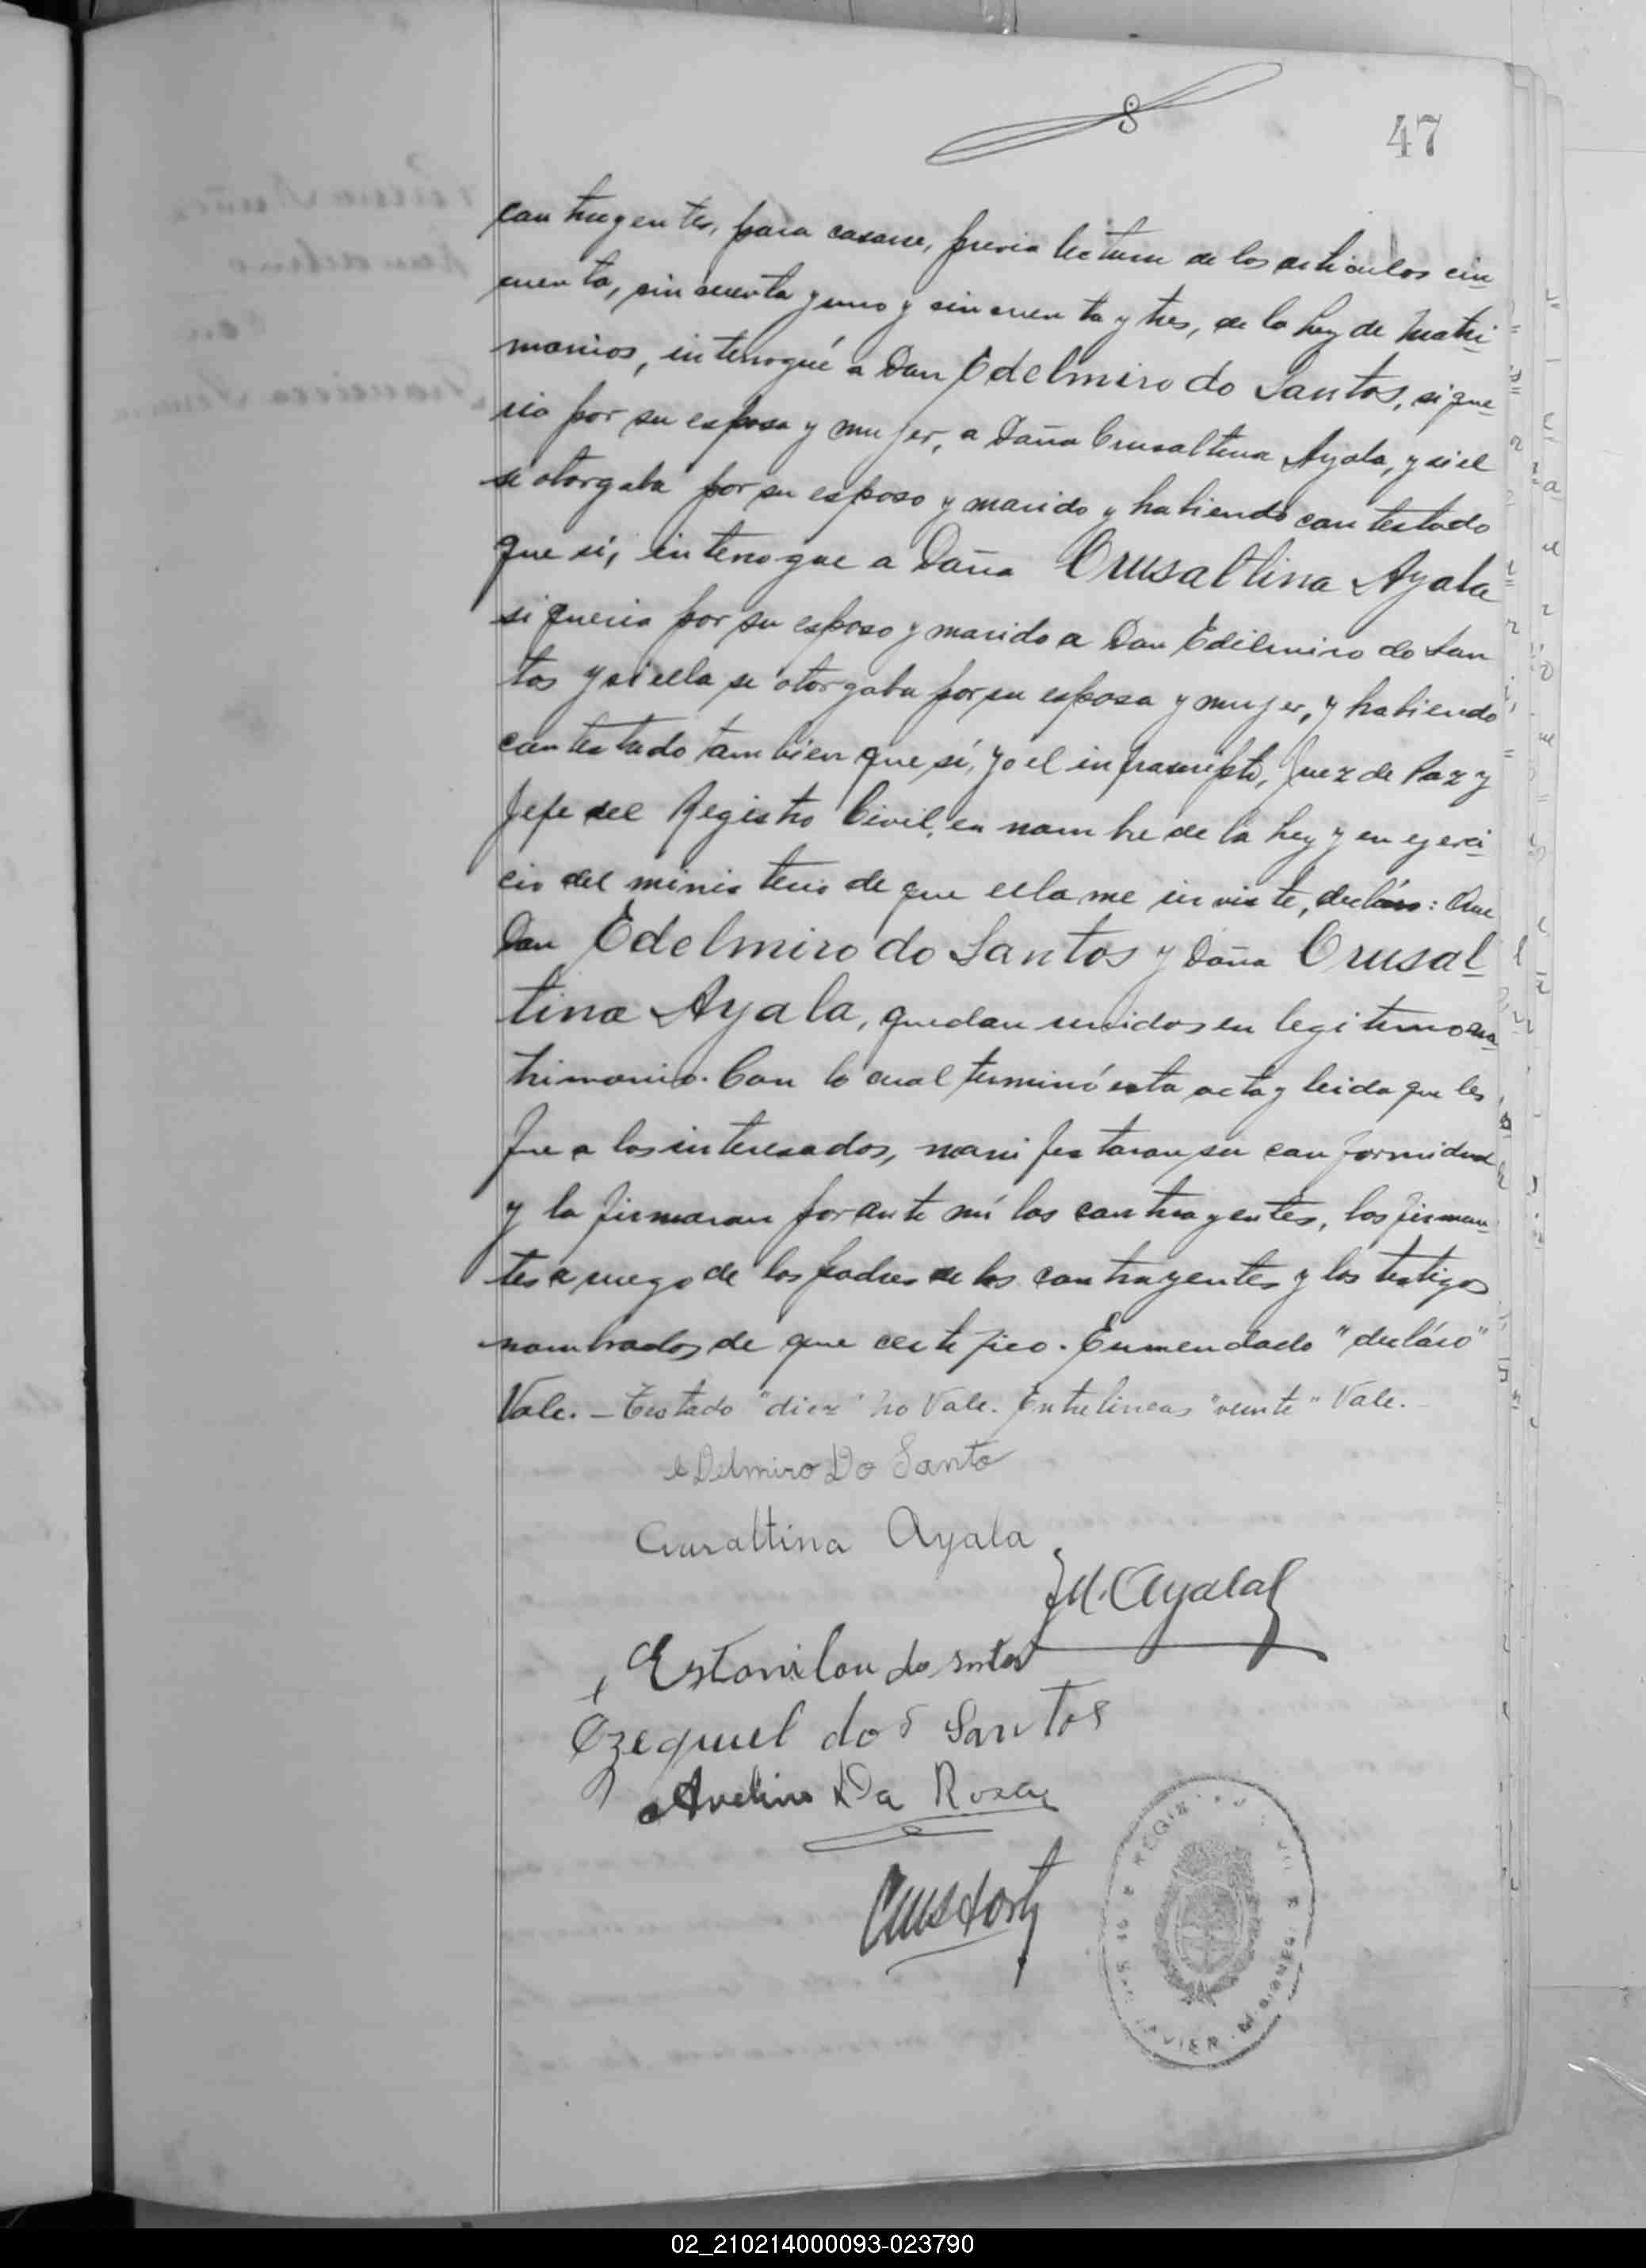 8
47
contrayentes, para casarse, previa lectura de los articulos cin
cuenta, cincuenta y uno y cincuenta y tres, de la Ley de Matri-
monios, interrogué a Don Edelmiro do Santos, si que-
ria por su esposa y mujer, a Doña Crusaltina Ayala, y si el
se otorgaba por su esposo y marido y habiendo contestado
que sí, interrogue a Doña Crusaltina Ayala
si queria por su esposo y marido a Don Edilmiro do San
tos y si ella se otorgaba por su esposa y mujer, y habiendo
contestado tambien que sí, yo el infrascripto, Juez de Paz y
Jefe del Registro Civil, en nombre de la Ley y en ejerci-
cio del ministerio de que ella me inviste, decláro: Que
Don Edelmiro do Santos y Doña Crusal-
tina Ayala, quedan unidos en legitimo ma-
trimonio. Con lo cual terminó esta acta y leida que les
fue a los interesados, manifestaron su conformidad
y la firmaron por ante mí los contrayentes, los firman-
tes a ruego de los padres de los contrayentes y los testigos
nombrados de que certifico. Enmendado "decláro"
Vale. - Testado "diez" no Vale. Entrelineas "veinte" Vale.
eDelmiro Do Santo
Crusaltina Ayala
M. Ayala
Estanilau do Santos
Ezequiel dos Santos
Avelino Da Rosa
REGIS
JAVIER Misiones
02_210214000093-023790